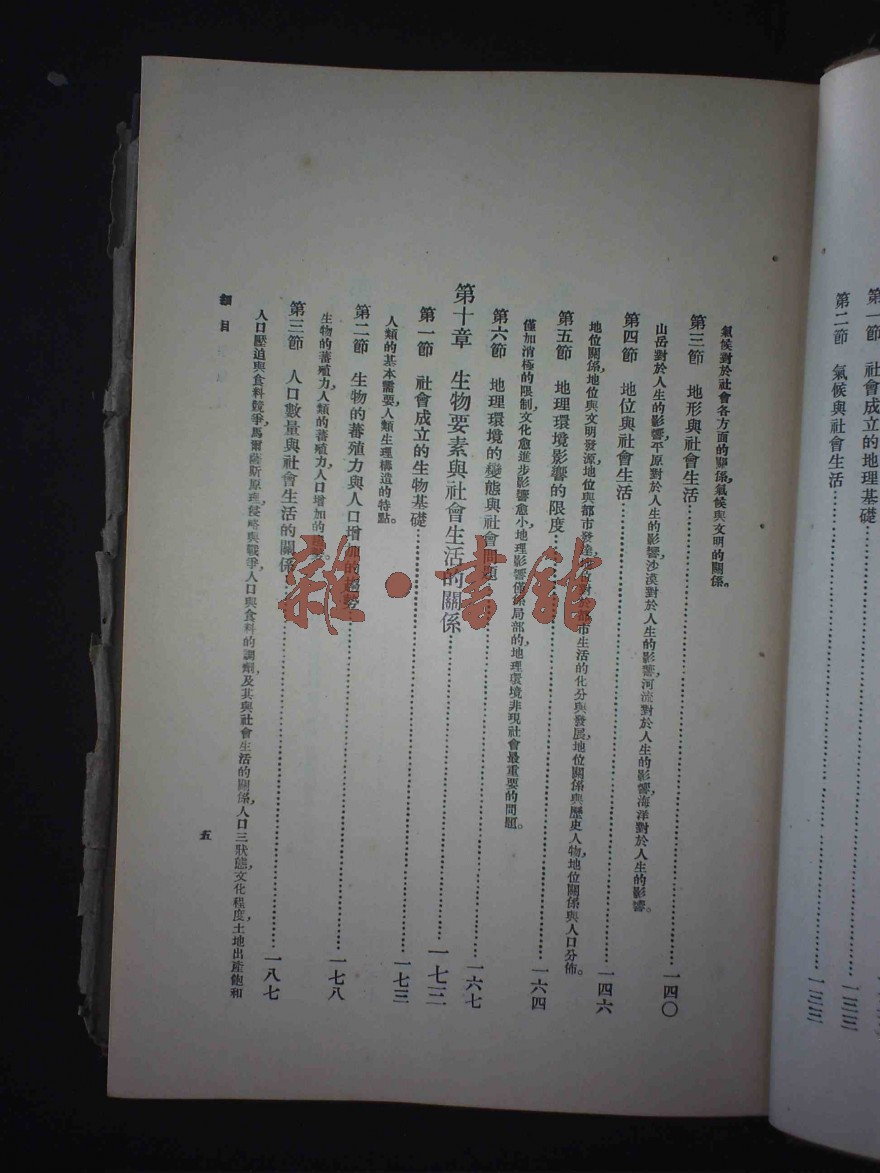 第一節　社會成立的地理基礎
第二節　氣候與社會生活……一三三
氣候對於社會各方面的關係，氣候與文明的關係。
第三節　地形與社會生活……一四〇
山岳對於人生的影響，平原對於人生的影響，沙漠對於人生的影響，河流對於人生的影響，海洋對於人生的影響。
第四節　地位與社會生活……一四六
地位關係，地位與文明發源，地位與都市發達，地位對於都市生活的化分與發展，地位關係與歷史人物，地位關係與人口分佈。
第五節　地理環境影響的限度……一六四
僅加消極的限制，文化愈進步影響愈小，地理影響僅係局部的，地理環境非現社會最重要的問題。
第六節　地理環境的變態與社會問題……一六七
第十章　生物要素與社會生活的關係……一七三
第一節　社會成立的生物基礎……一七三
人類的基本需要，人類生理構造的特點。
第二節　生物的蕃殖力與人口增加的趨勢……一七八
生物的蕃殖力，人類的蕃殖力，人口增加的
第三節　人口數量與社會生活的關係……一八七
人口壓迫與食料競爭，馬爾薩斯原理，侵略與戰爭，人口與食料的調劑，及其與社會生活的關係，人口三狀態，文化程度，土地出產飽和
類目
五
雜·書館